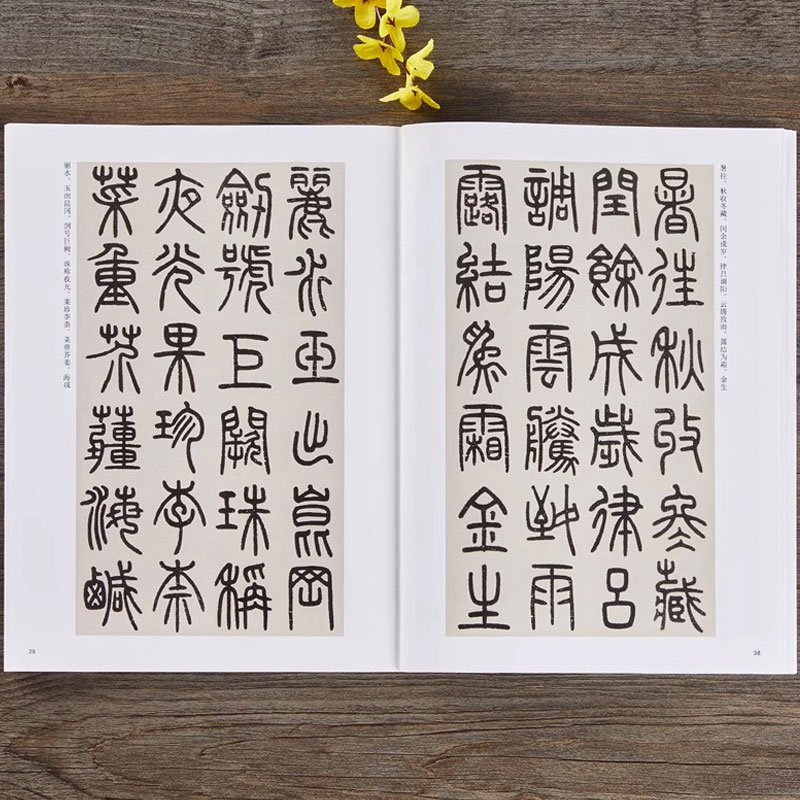 暑往秋收冬藏
閏餘成歲律呂
調陽雲騰致雨
露結為霜金生
暑往，秋收冬藏，闰余成岁，律吕调阳，云腾致雨，露结为霜，金生
38
麗水玉出崑岡
劍號巨闕珠稱
夜光果珍李柰
菜重芥薑海鹹
丽水，玉出昆冈，剑号巨阙，珠称夜光，果珍李柰，菜重芥姜，海咸
39